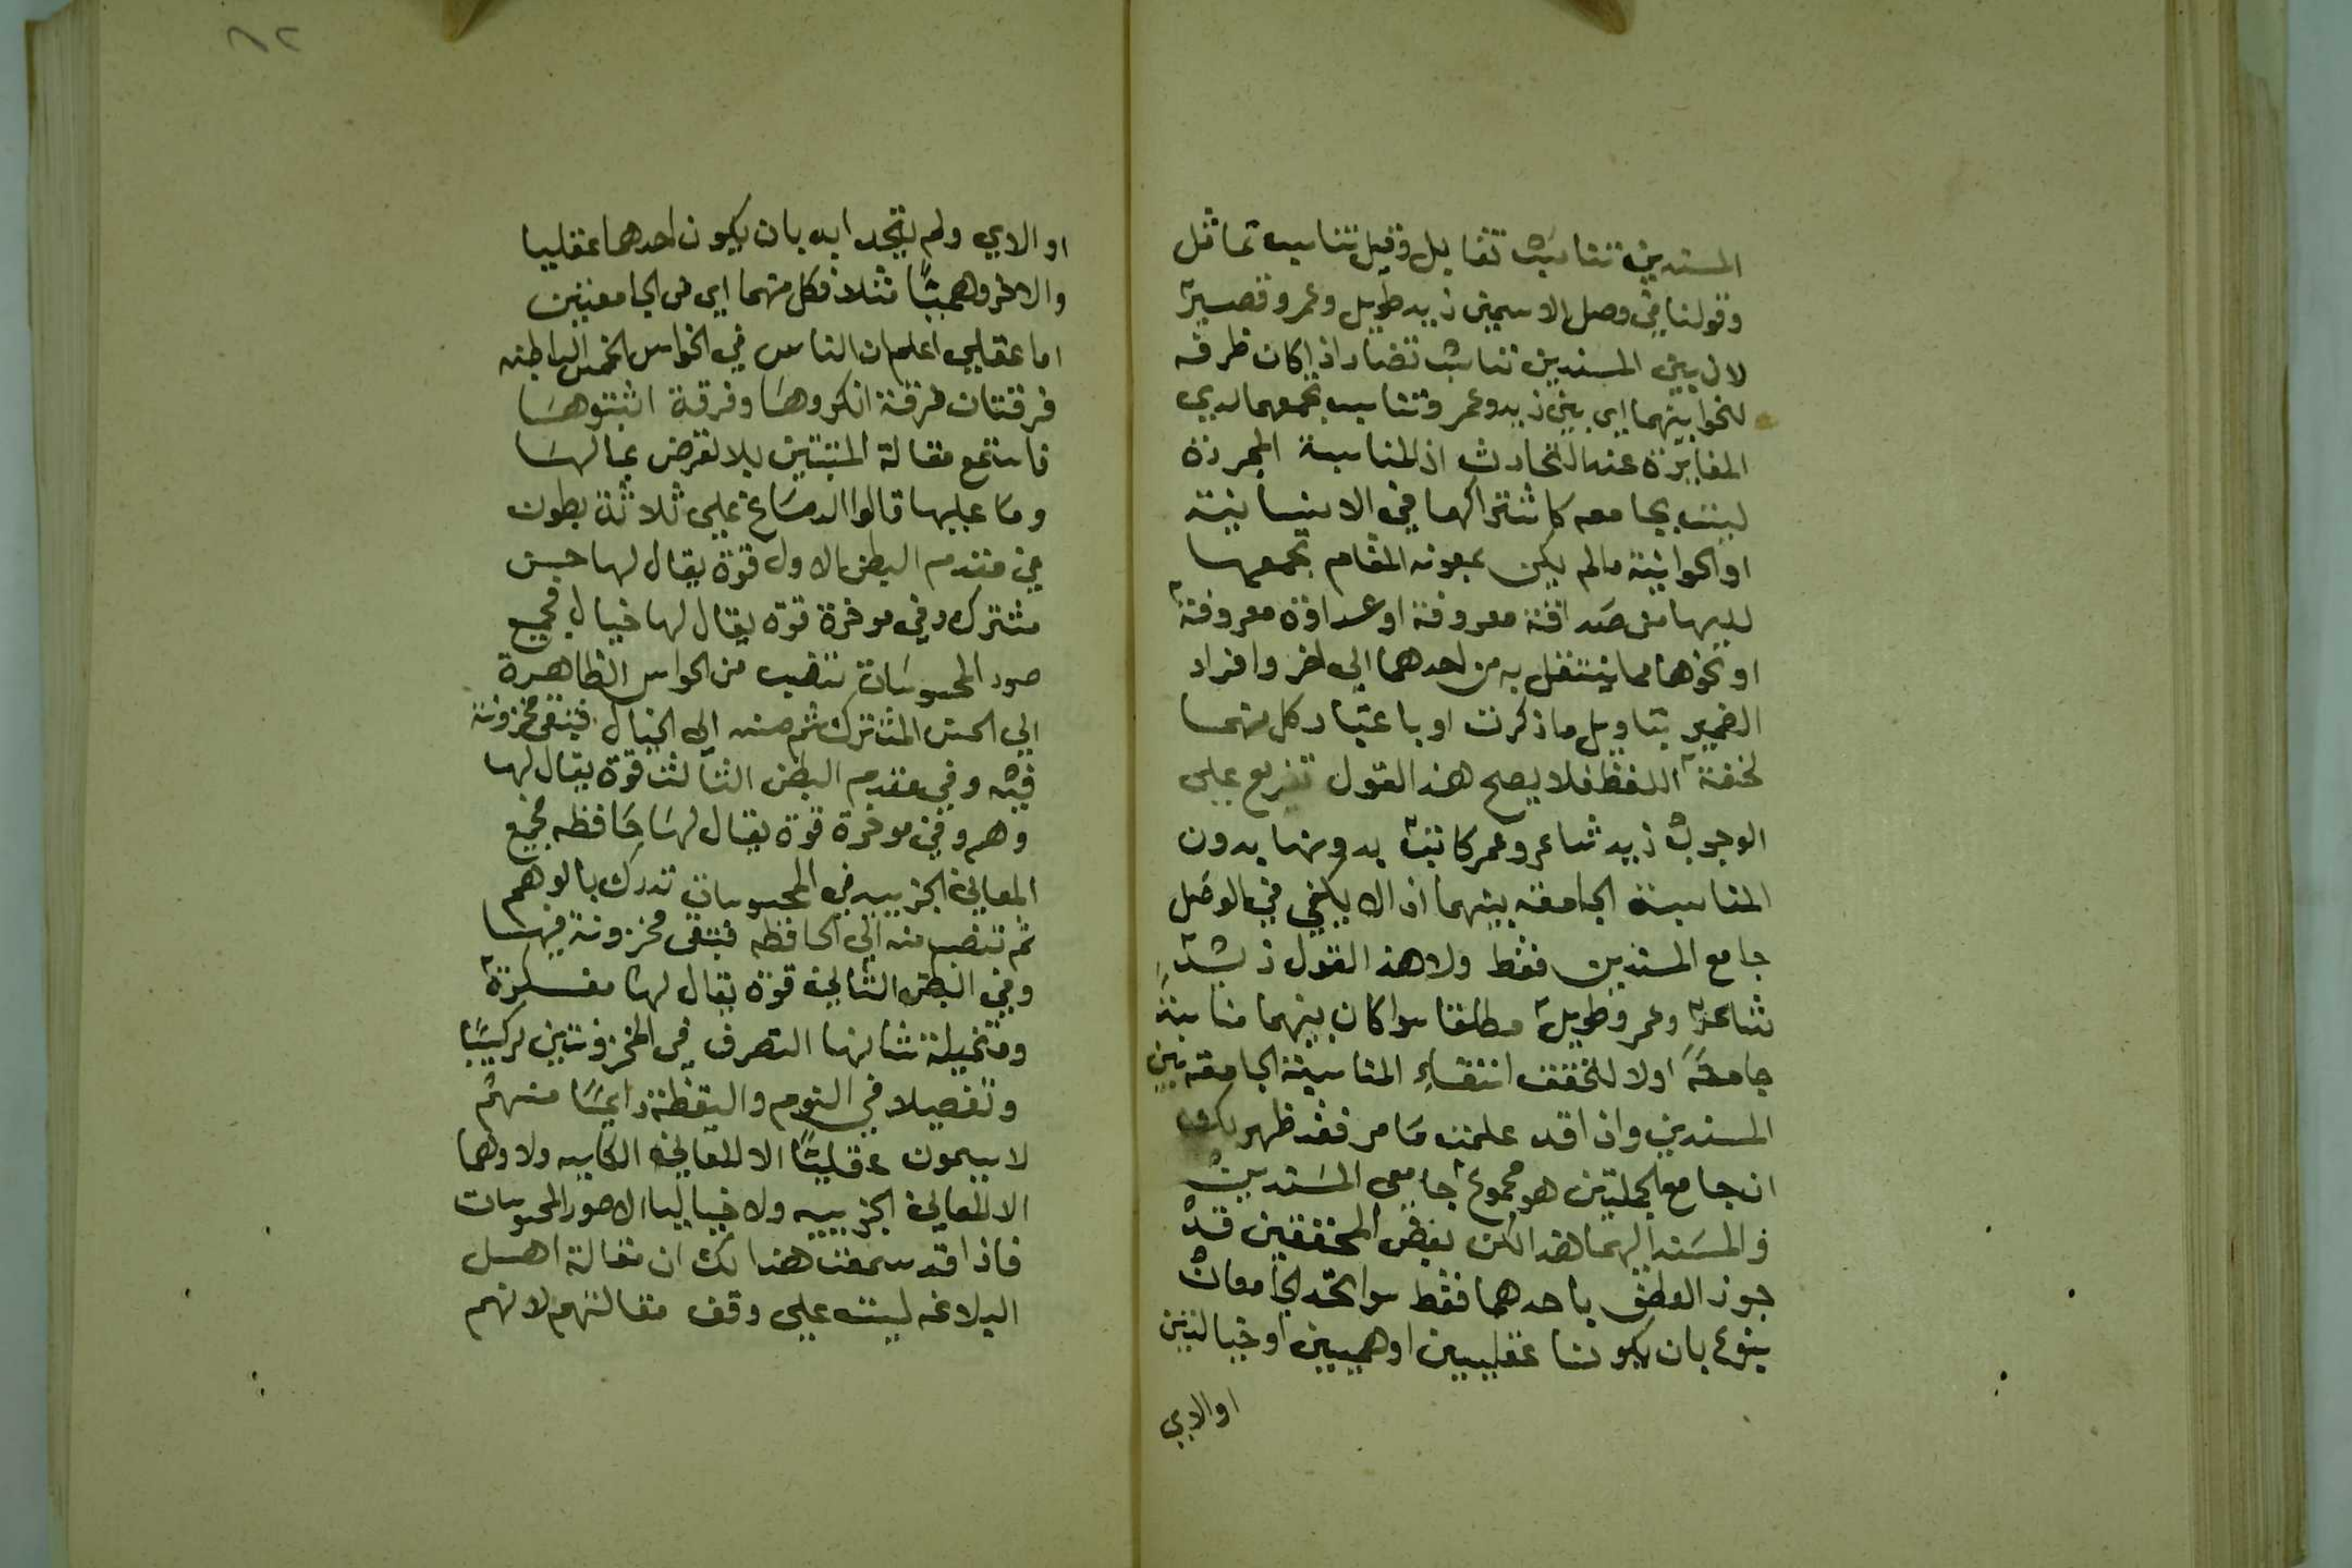 المسندين تناسب تقابل وقيل تناسب تماثل
وقولنا في وصل الاسمين زيد طويل وعمرو قصير
لان بين المسندين تناسب تضاد اذا كان ظرفه
بينهما اي بين زيد وعمرو تناسب يجمعهما لدي
المغايرة عند التحادث اذ المناسبة المجردة
ليست بجامعه كاشتراكهما في الانسانية
او الحوانية مالم يكن بمعونه المقام تجمعهما
من صداقة معروفة او عداوة معروفة
او نحوهما مما ينتقل به من احدهما الي اخر وافراد
الضمير بتاويل ما ذكرت او باعتبار كل منهما
لخفة اللفظ فلا يصح هذا القول تفريع علي
الوجوب زيد شاعر وعمر كاتب بدونها بدون
المناسبة الجامعه بينهما اذ لا يكفي في الوصل
جامع المسندين فقط ولا هذا القول زيد
شاعر وعمرو طويل مطلقا سوا كان بينهما مناسبة
جامعة اولا لتحقق انتفاء المناسبة الجامعه بين
المسندين واذا قد علمت ما مر فقد ظهر لك
ان جامع الجملتين هو مجموع جامعي المسندين
والمسند اليهما هذا لكن بعض المحققين قد
جوز العطف باحدهما فقط سوا اتحد الجامعان
بنوع بان يكونا عقليين او وهميين او خياليين
او لا اي
او لا اي ولم يتحد ايه بان يكون احدهما عقليا
والاخر وهميا مثلا فكل منهما اي من الجامعين
اما عقلي اعلم ان الناس في الحواس الخمس الباطنه
فرقتان فرقة انكروها وفرقة اثبتوها
فاستمع مقالة المثبتين بلا تعرض بما لها
وما عليها قالوا الدماغ علي ثلاثة بطون
في مقدم البطن الاول قوة يقال لها حس
مشترك وفي موخرة قوة يقال لها خيال فجميع
صور المحسوسات تنصب من الحواس الظاهرة
الي الحس المشترك ثم منه الي الخيال فتبقي مخزونة
فيه وفي مقدم البطن الثالث قوة يقال لها
وهم وفي موخرة قوة يقال لها حافظه فجميع
المعاني الجزييه في المحسوسات تدرك بالوهم
ثم تنصب منه الي الحافظه فتبقي مخزونة فيها
وفي البطن الثاني قوة يقال لها مفكرة
ومتخيلة شانها التصرف في المخزونتين تركيبا
وتفصيلا في النوم واليقظة دايما منهم
لا يسمون عقليا الا المعاني الكليه ولا وهما
الا المعاني الجزييه ولا خياليا الا صور المحسوسات
فاذا قد سمعت هذا لك ان مقالة اهل
البلاغه ليست علي وقف مقالتهم لانهم